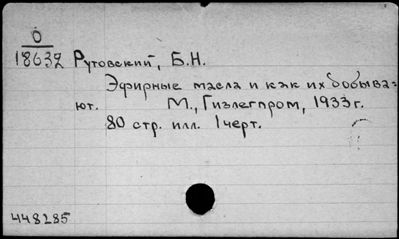 О
18632 Рутовский, Б.Н.
Эфирные масла и как их добыва-
ют. М., Гизлегпром, 1933 г.
80 стр. илл. 1 черт.
448285